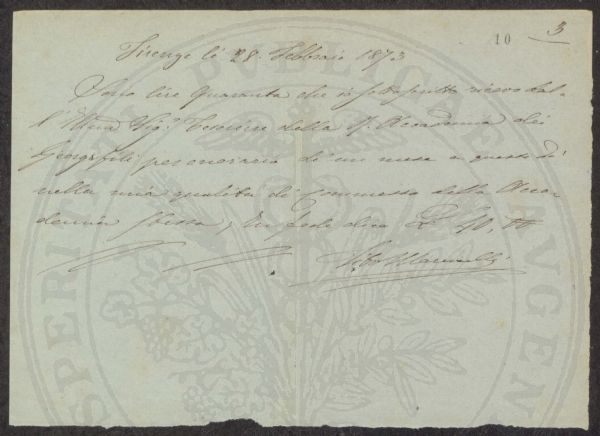 10 3
Firenze lì 28. Febbraio 1873
Sono lire quaranta che io sottoscritto ricevo dal
l'Illmo Sigr. Tesoriere della R. Accademia dei
Georgofili per onorario di un mese a questo dì
nella mia qualità di Commesso della Acca
demia stessa, In fede dico £ 40,00
PUBLICAE
SPERITATI
AUGEN